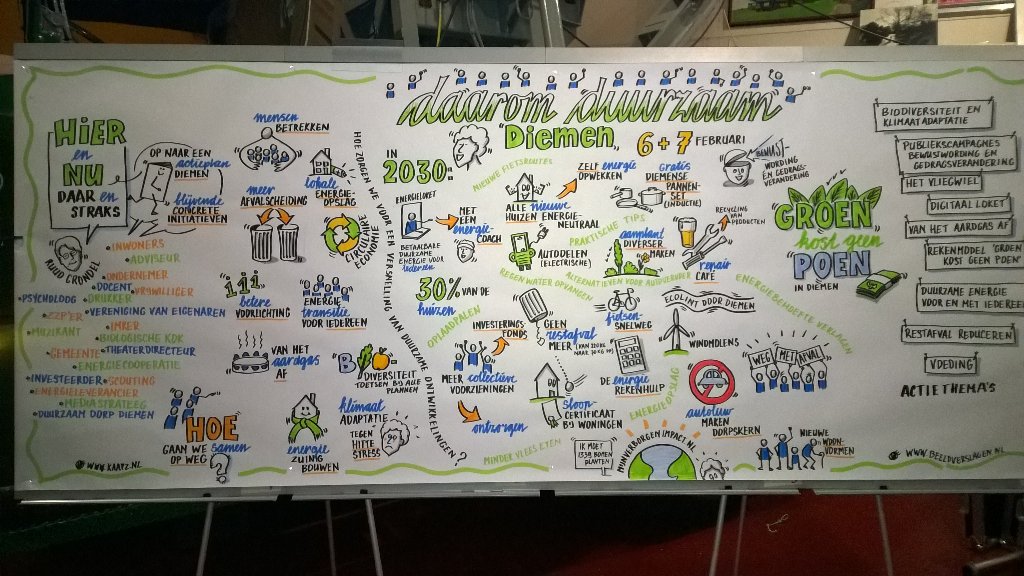 daarom duurzaam
Diemen
6+7 FEBRUARI
HIER
en
NU
DAAR en
STRAKS
OP NAAR EEN
actieplan
DIEMEN
blijvende
CONCRETE
INITIATIEVEN
RUUD GRONDEL
• INWONERS
• ADVISEUR
• ONDERNEMER
• DOCENT
• VRIJWILLIGER
• PSYCHOLOOG
• DRUKKER
• VERENIGING VAN EIGENAREN
• ZZP'ER
• IMKER
• MUZIKANT
• BIOLOGISCHE KDK
• GEMEENTE
• THEATERDIRECTEUR
• ENERGIECOOPERATIE
• INVESTEERDER
• SCOUTING
• ENERGIELEVERANCIER
• MEDIASTRATEEG
• DUURZAAM DORP DIEMEN
HOE
GAAN WE samen
OP WEG
?
WWW.KAATZ.NL
mensen
BETREKKEN
meer
AFVALSCHEIDING
lokale
ENERGIE-
OPSLAG
CIRCULAIRE
ECONOMIE
betere
VOORLICHTING
ENERGIE
transitie
VOOR IEDEREEN
VAN HET
aardgas
AF
B
DIVERSITEIT
TOETSEN BIJ ALLE
PLANNEN
energie
ZUINIG
BOUWEN
klimaat
ADAPTATIE
TEGEN
HITTE
STRESS
HOE ZORGEN WE VOOR EEN VERSNELLING VAN DUURZAME ONTWIKKELINGEN?
IN
2030
ENERGIELOKET
BETAALBARE
DUURZAME
ENERGIE VOOR
iedereen
MET EEN
energie
COACH
30% VAN DE
huizen
OPLAADPALEN
INVESTERINGS
FONDS
MEER collectieve
VOORZIENINGEN
ontzorgen
MINDER VLEES ETEN
NIEUWE FIETSROUTES
ALLE nieuwe
HUIZEN ENERGIE-
NEUTRAAL
ZELF energie
OPWEKKEN
AUTODELEN
(ELECTRISCHE)
REGENWATER OPVANGEN
GEEN
restafval
MEER
sloop-
CERTIFICAAT
BIJ WONINGEN
IK MOET
1339 BOMEN
PLANTEN
gratis
DIEMENSE
PANNEN-
SET
(INDUCTIE)
PRAKTISCHE
TIPS
aanplant
DIVERSER
MAKEN
ALTERNATIEVEN VOOR AUTOVERVOER
fietsen-
SNELWEG
DE energie
REKENHULP
ENERGIE OPSLAG
MIJNVERBORGENIMPACT.NL
BEWUST-
WORDING
EN GEDRAGS-
VERANDERING
RECYCLING
VAN
PRODUCTEN
repair
CAFE
ECOLINT DOOR DIEMEN
ENERGIEBEHOEFTE VERLAGEN
WINDMOLENS
WEG MET AFVAL
autoluw
MAKEN
DORPSKERN
NIEUWE
WOON-
VORMEN
GROEN
kost geen
POEN
IN DIEMEN
BIODIVERSITEIT EN
KLIMAATADAPTATIE
PUBLIEKSCAMPAGNES
BEWUSTWORDING EN
GEDRAGSVERANDERING
HET VLIEGWIEL
DIGITAAL LOKET
VAN HET AARDGAS AF
REKENMODEL 'GROEN
KOST GEEN POEN'
DUURZAME ENERGIE
VOOR EN MET IEDEREEN
RESTAFVAL REDUCEREN
VOEDING
ACTIETHEMA'S
WWW.BEELDVERSLAGEN.NL